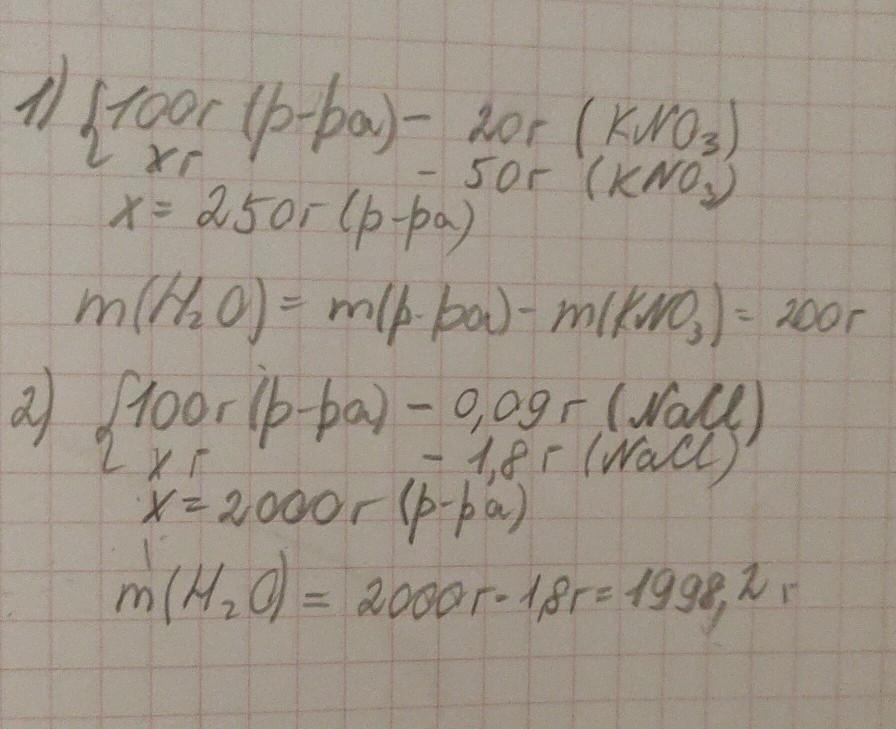 1) {100г (р-ра) - 20г (KNO₃)
xг - 50г (KNO₃)
x = 250г (р-ра)
m(H₂O) = m(р-ра) - m(KNO₃) = 200г
2) {100г (р-ра) - 0,09г (NaCl)
xг - 1,8г (NaCl)
x = 2000г (р-ра)
m(H₂O) = 2000г - 1,8г = 1998,2г